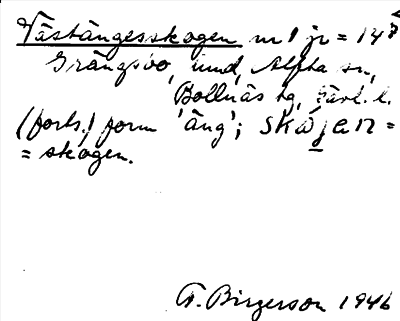 Västängesskogen m 1 jr = 14
Grängsbo, und, Alfta sn,
Bollnäs tg, Gävl. l.
(forts.) form 'äng'; skójen =
= skogen.
F. Birgerson 1946